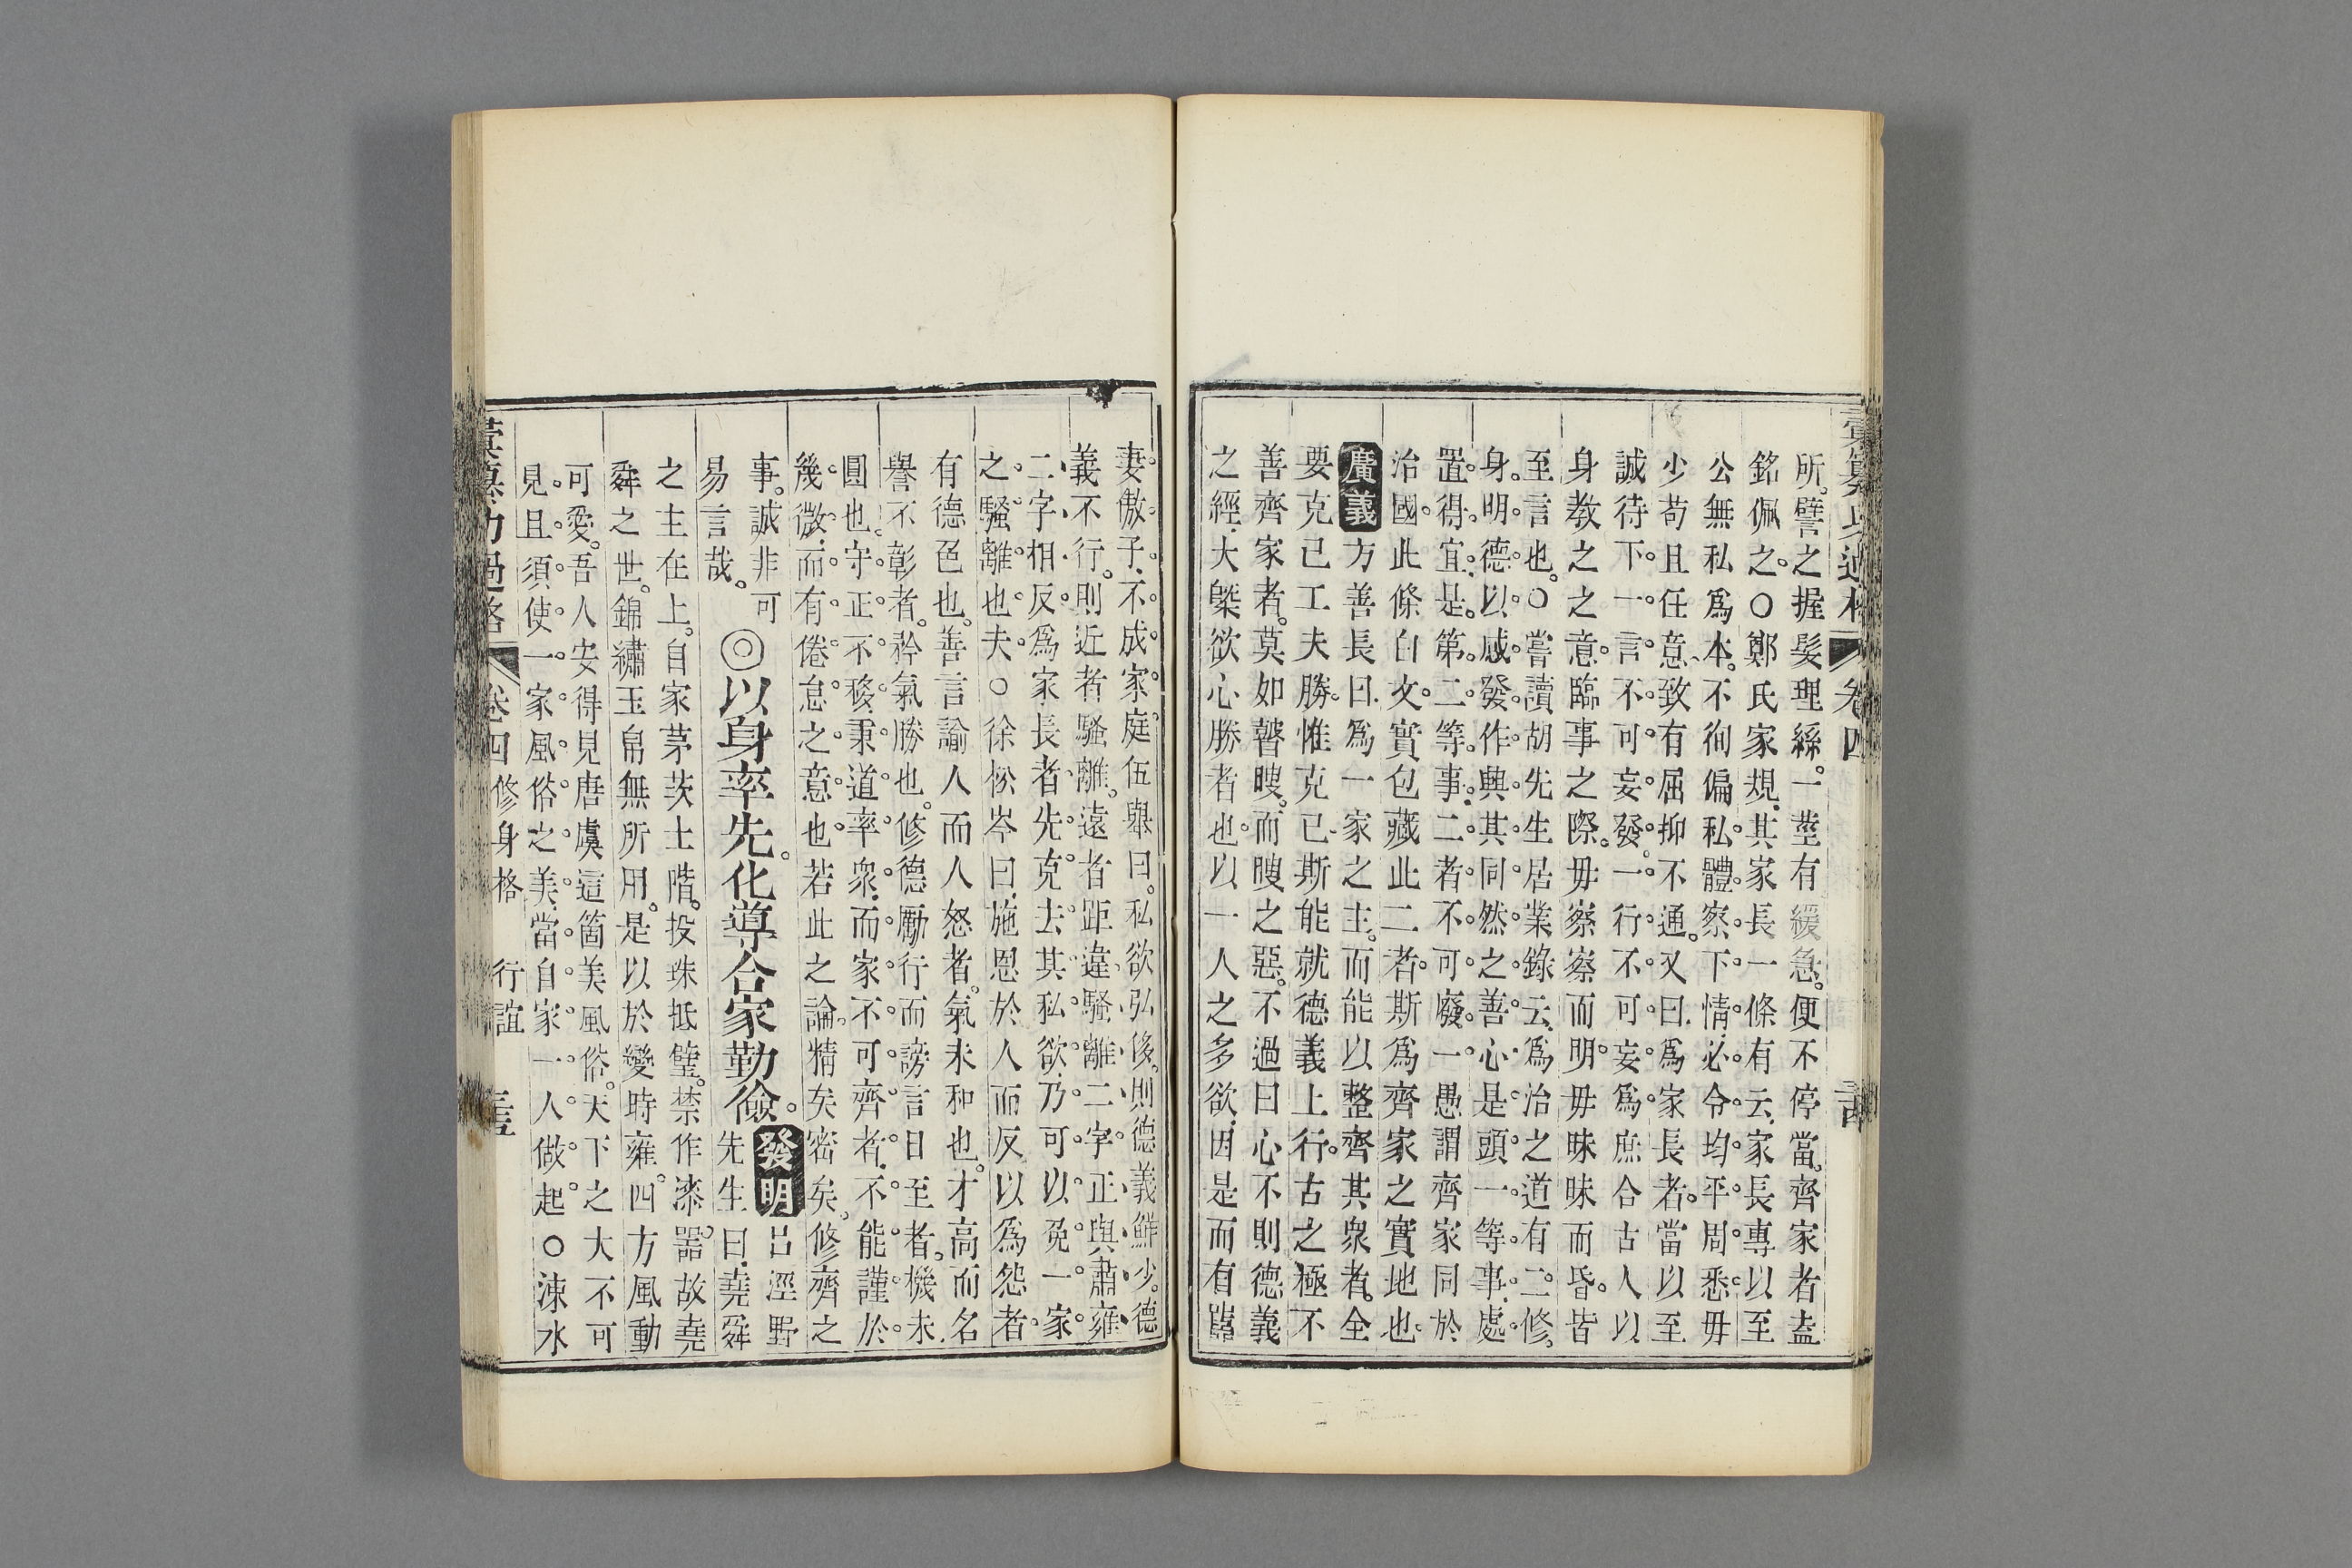 所譬之握髮理絲一莖有緩急便不停當齊家者盍
銘佩之〇鄭氏家規其家長一條有云家長專以至
公無私爲本不徇偏私體察下情必令均平周悉毋
少苟且任意致有屈抑不通又曰爲家長者當以至
誠待下一言不可妄發一行不可妄爲庶合古人以
身教之之意臨事之際毋察察而明毋昧昧而昏皆
至言也〇嘗讀胡先生居業錄云爲治之道有二修
身明德以感發作興其同然之善心是頭一等事處
置得宜是第二等事二者不可廢一愚謂齊家同於
治國此條白文實包藏此二者斯爲齊家之實地也
廣義方善長曰爲一家之主而能以整齊其衆者全
要克己工夫勝惟克己斯能就德義上行古之極不
善齊家者莫如瞽瞍而瞍之惡不過曰心不則德義
之經大槩欲心勝者也以一人之多欲因是而有嚚
妻傲子不成家庭伍舉曰私欲弘侈則德義鮮少德
義不行則近者騷離遠者距違騷離二字正與肅雍
二字相反爲家長者先克去其私欲乃可以免一家
之騷離也夫〇徐松岑曰施恩於人而反以爲怨者
有德色也善言諭人而人怒者氣未和也才高而名
譽不彰者矜氣勝也修德勵行而謗言日至者機未
圓也守正不移秉道率衆而家不可齊者不能謹於
幾微而有倦怠之意也若此之論精矣密矣修齊之
事誠非可
易言哉
◎以身率先化導合家勤儉
發明呂涇野
先生曰堯舜
之主在上自家茅茨土階投珠抵璧禁作漆器故堯
舜之世錦繡玉帛無所用是以於變時雍四方風動
可愛吾人安得見唐虞這箇美風俗天下之大不可
見且須使一家風俗之美當自家一人做起〇涑水
彙纂功過格 卷四修身格 行誼